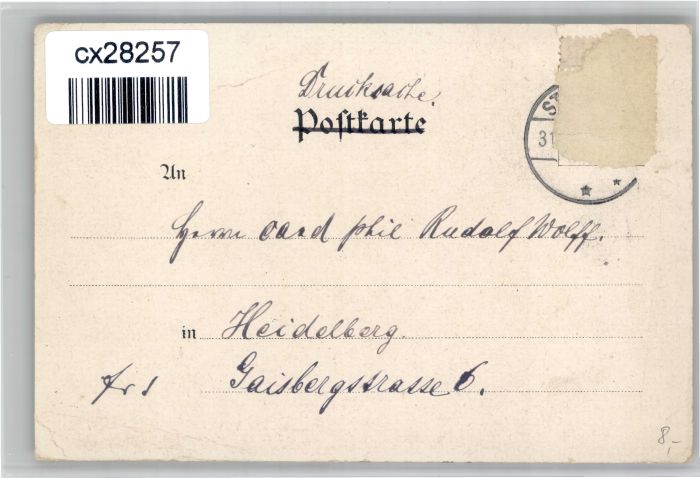 cx28257
Drucksache.
Postkarte
An
Herrn cand phil Rudolf Wolff.
in Heidelberg.
Gaisbergstrasse 6.
St
31
8,-